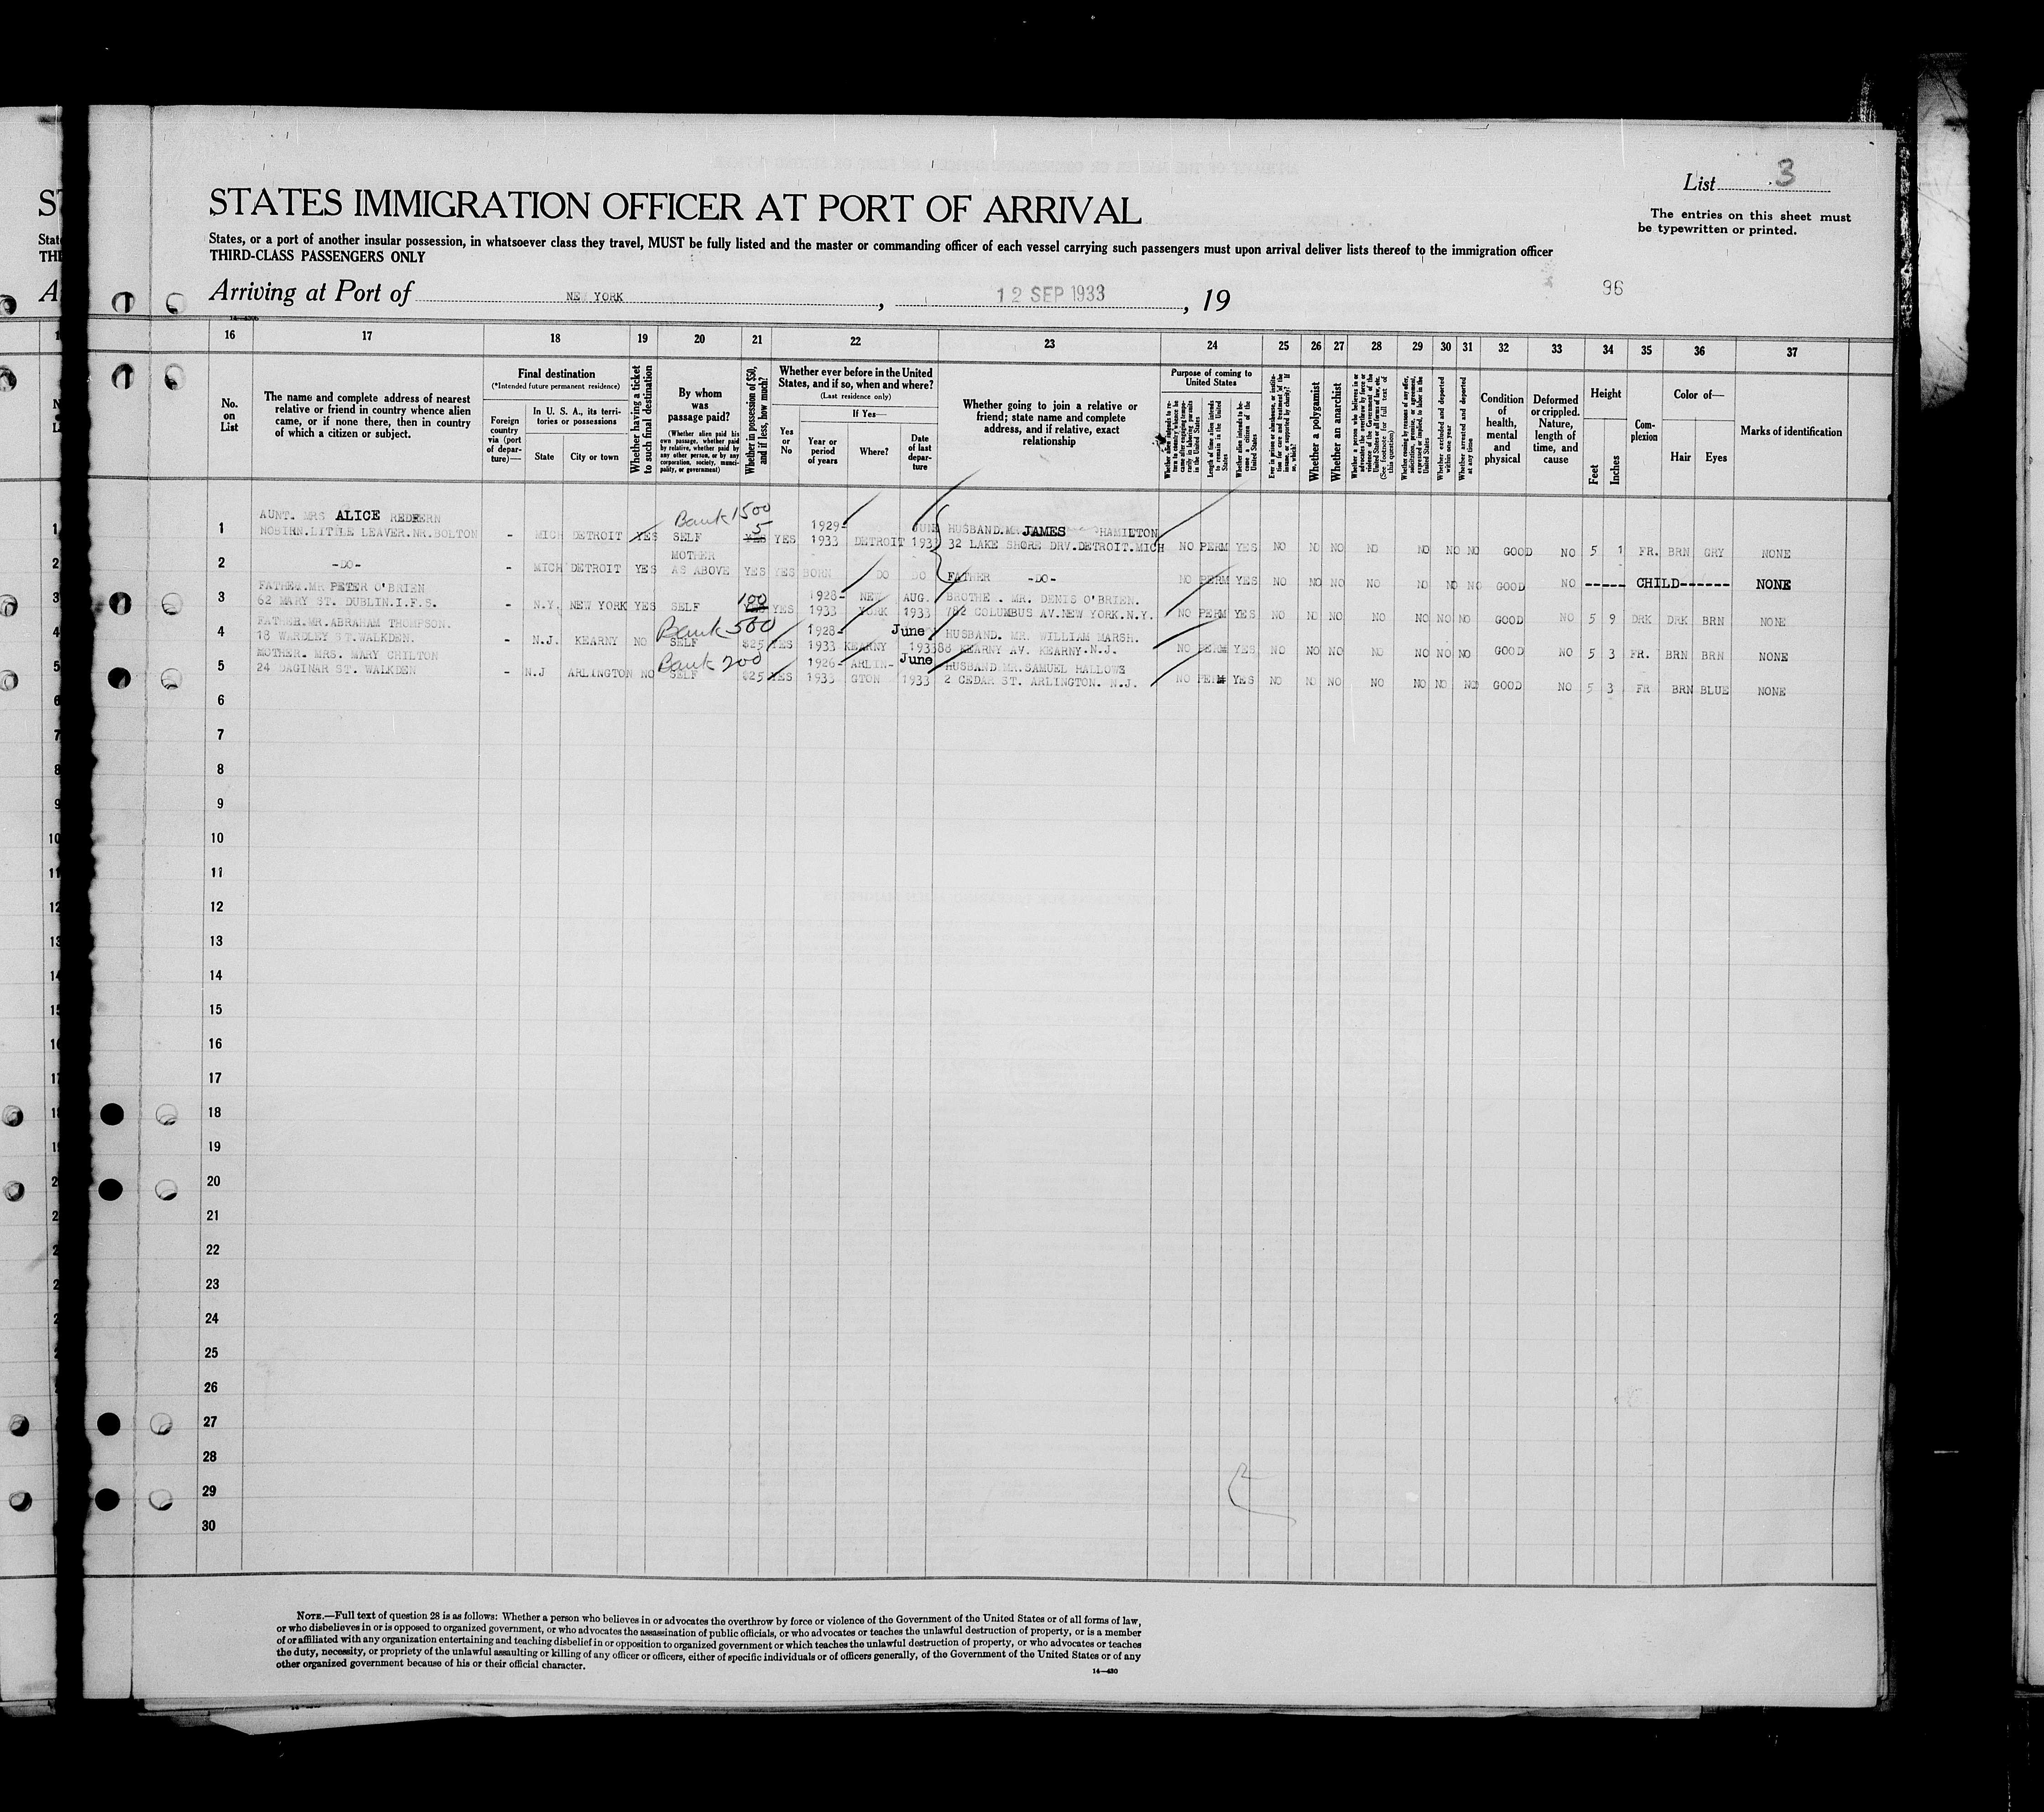 List 3
The entries on this sheet must
be typewritten or printed.
STATES IMMIGRATION OFFICER AT PORT OF ARRIVAL
States, or a port of another insular possession, in whatsoever class they travel, MUST be fully listed and the master or commanding officer of each vessel carrying such passengers must upon arrival deliver lists thereof to the immigration officer
THIRD-CLASS PASSENGERS ONLY
Arriving at Port of NEW YORK, 12 SEP 1933, 19
96
16 17 18 19 20 21 22 23 24 25 26 27 28 29 30 31 32 33 34 35 36 37
No. on List
The name and complete address of nearest
relative or friend in country whence alien
came, or if none there, then in country
of which a citizen or subject.
Final destination
(*Intended future permanent residence)
Foreign country via (port of departure)—
In U. S. A., its territories or possessions
State
City or town
Whether having a ticket to such final destination
By whom was passage paid?
(Whether alien paid his own passage, whether paid by relative, whether paid by any other person, or by any corporation, society, municipality, or government)
Whether in possession of $50, and if less, how much?
Whether ever before in the United
States, and if so, when and where?
(Last residence only)
Yes or No
If Yes—
Year or period of years
Where?
Date of last departure
Whether going to join a relative or
friend; state name and complete
address, and if relative, exact
relationship
Purpose of coming to United States
Length of time alien intends to remain in the United States
Whether alien intends to become a citizen of the United States
Whether a polygamist
Whether an anarchist
Whether excluded and deported within one year
Whether arrested and deported at any time
Condition of health, mental and physical
Deformed or crippled. Nature, length of time, and cause
Height
Feet
Inches
Complexion
Color of—
Hair
Eyes
Marks of identification
AUNT. MRS ALICE REDFERN Bank 1500
1 NOBIRN.LITTLE LEAVER.NR.BOLTON - MICH DETROIT YES SELF 5 YES YES 1929- 1933 DETROIT JUNE 1933 HUSBAND.MR.JAMES HAMILTON 32 LAKE SHORE DRV.DETROIT.MICH NO PERM YES NO NO NO NO NO NO NO GOOD NO 5 1 FR. BRN GRY NONE
2 -DO- - MICH DETROIT YES MOTHER AS ABOVE YES YES BORN DO DO FATHER -DO- NO PERM YES NO NO NO NO NO NO NO GOOD NO ----- CHILD ------ NONE
FATHER.MR PETER O'BRIEN
3 62 MARY ST. DUBLIN.I.F.S. - N.Y. NEW YORK YES SELF 100 YES YES 1928- 1933 NEW YORK AUG. 1933 BROTHE . MR. DENIS O'BRIEN. 782 COLUMBUS AV.NEW YORK.N.Y. NO PERM YES NO NO NO NO NO NO NO GOOD NO 5 9 DRK DRK BRN NONE
FATHER.MR.ABRAHAM THOMPSON. Bank 500
4 18 WARDLEY ST.WALKDEN. - N.J. KEARNY NO SELF $25 YES 1928- 1933 KEARNY June 1933 HUSBAND. MR. WILLIAM MARSH. 88 KEARNY AV. KEARNY.N.J. NO PERM YES NO NO NO NO NO NO NO GOOD NO 5 3 FR. BRN BRN NONE
MOTHER. MRS. MARY CRILTON Bank 200
5 24 DAGINAR ST. WALKDEN - N.J ARLINGTON NO SELF $25 YES 1926- 1933 ARLIN- GTON June 1933 HUSBAND.MR.SAMUEL HALLOWS 2 CEDAR ST. ARLINGTON. N.J. NO PERM YES NO NO NO NO NO NO NO GOOD NO 5 3 FR BRN BLUE NONE
6
7
8
9
10
11
12
13
14
15
16
17
18
19
20
21
22
23
24
25
26
27
28
29
30
NOTE.—Full text of question 28 is as follows: Whether a person who believes in or advocates the overthrow by force or violence of the Government of the United States or of all forms of law,
or who disbelieves in or is opposed to organized government, or who advocates the assassination of public officials, or who advocates or teaches the unlawful destruction of property, or is a member
of or affiliated with any organization entertaining and teaching disbelief in or opposition to organized government or which teaches the unlawful destruction of property, or who advocates or teaches
the duty, necessity, or propriety of the unlawful assaulting or killing of any officer or officers, either of specific individuals or of officers generally, of the Government of the United States or of any
other organized government because of his or their official character.
14—430